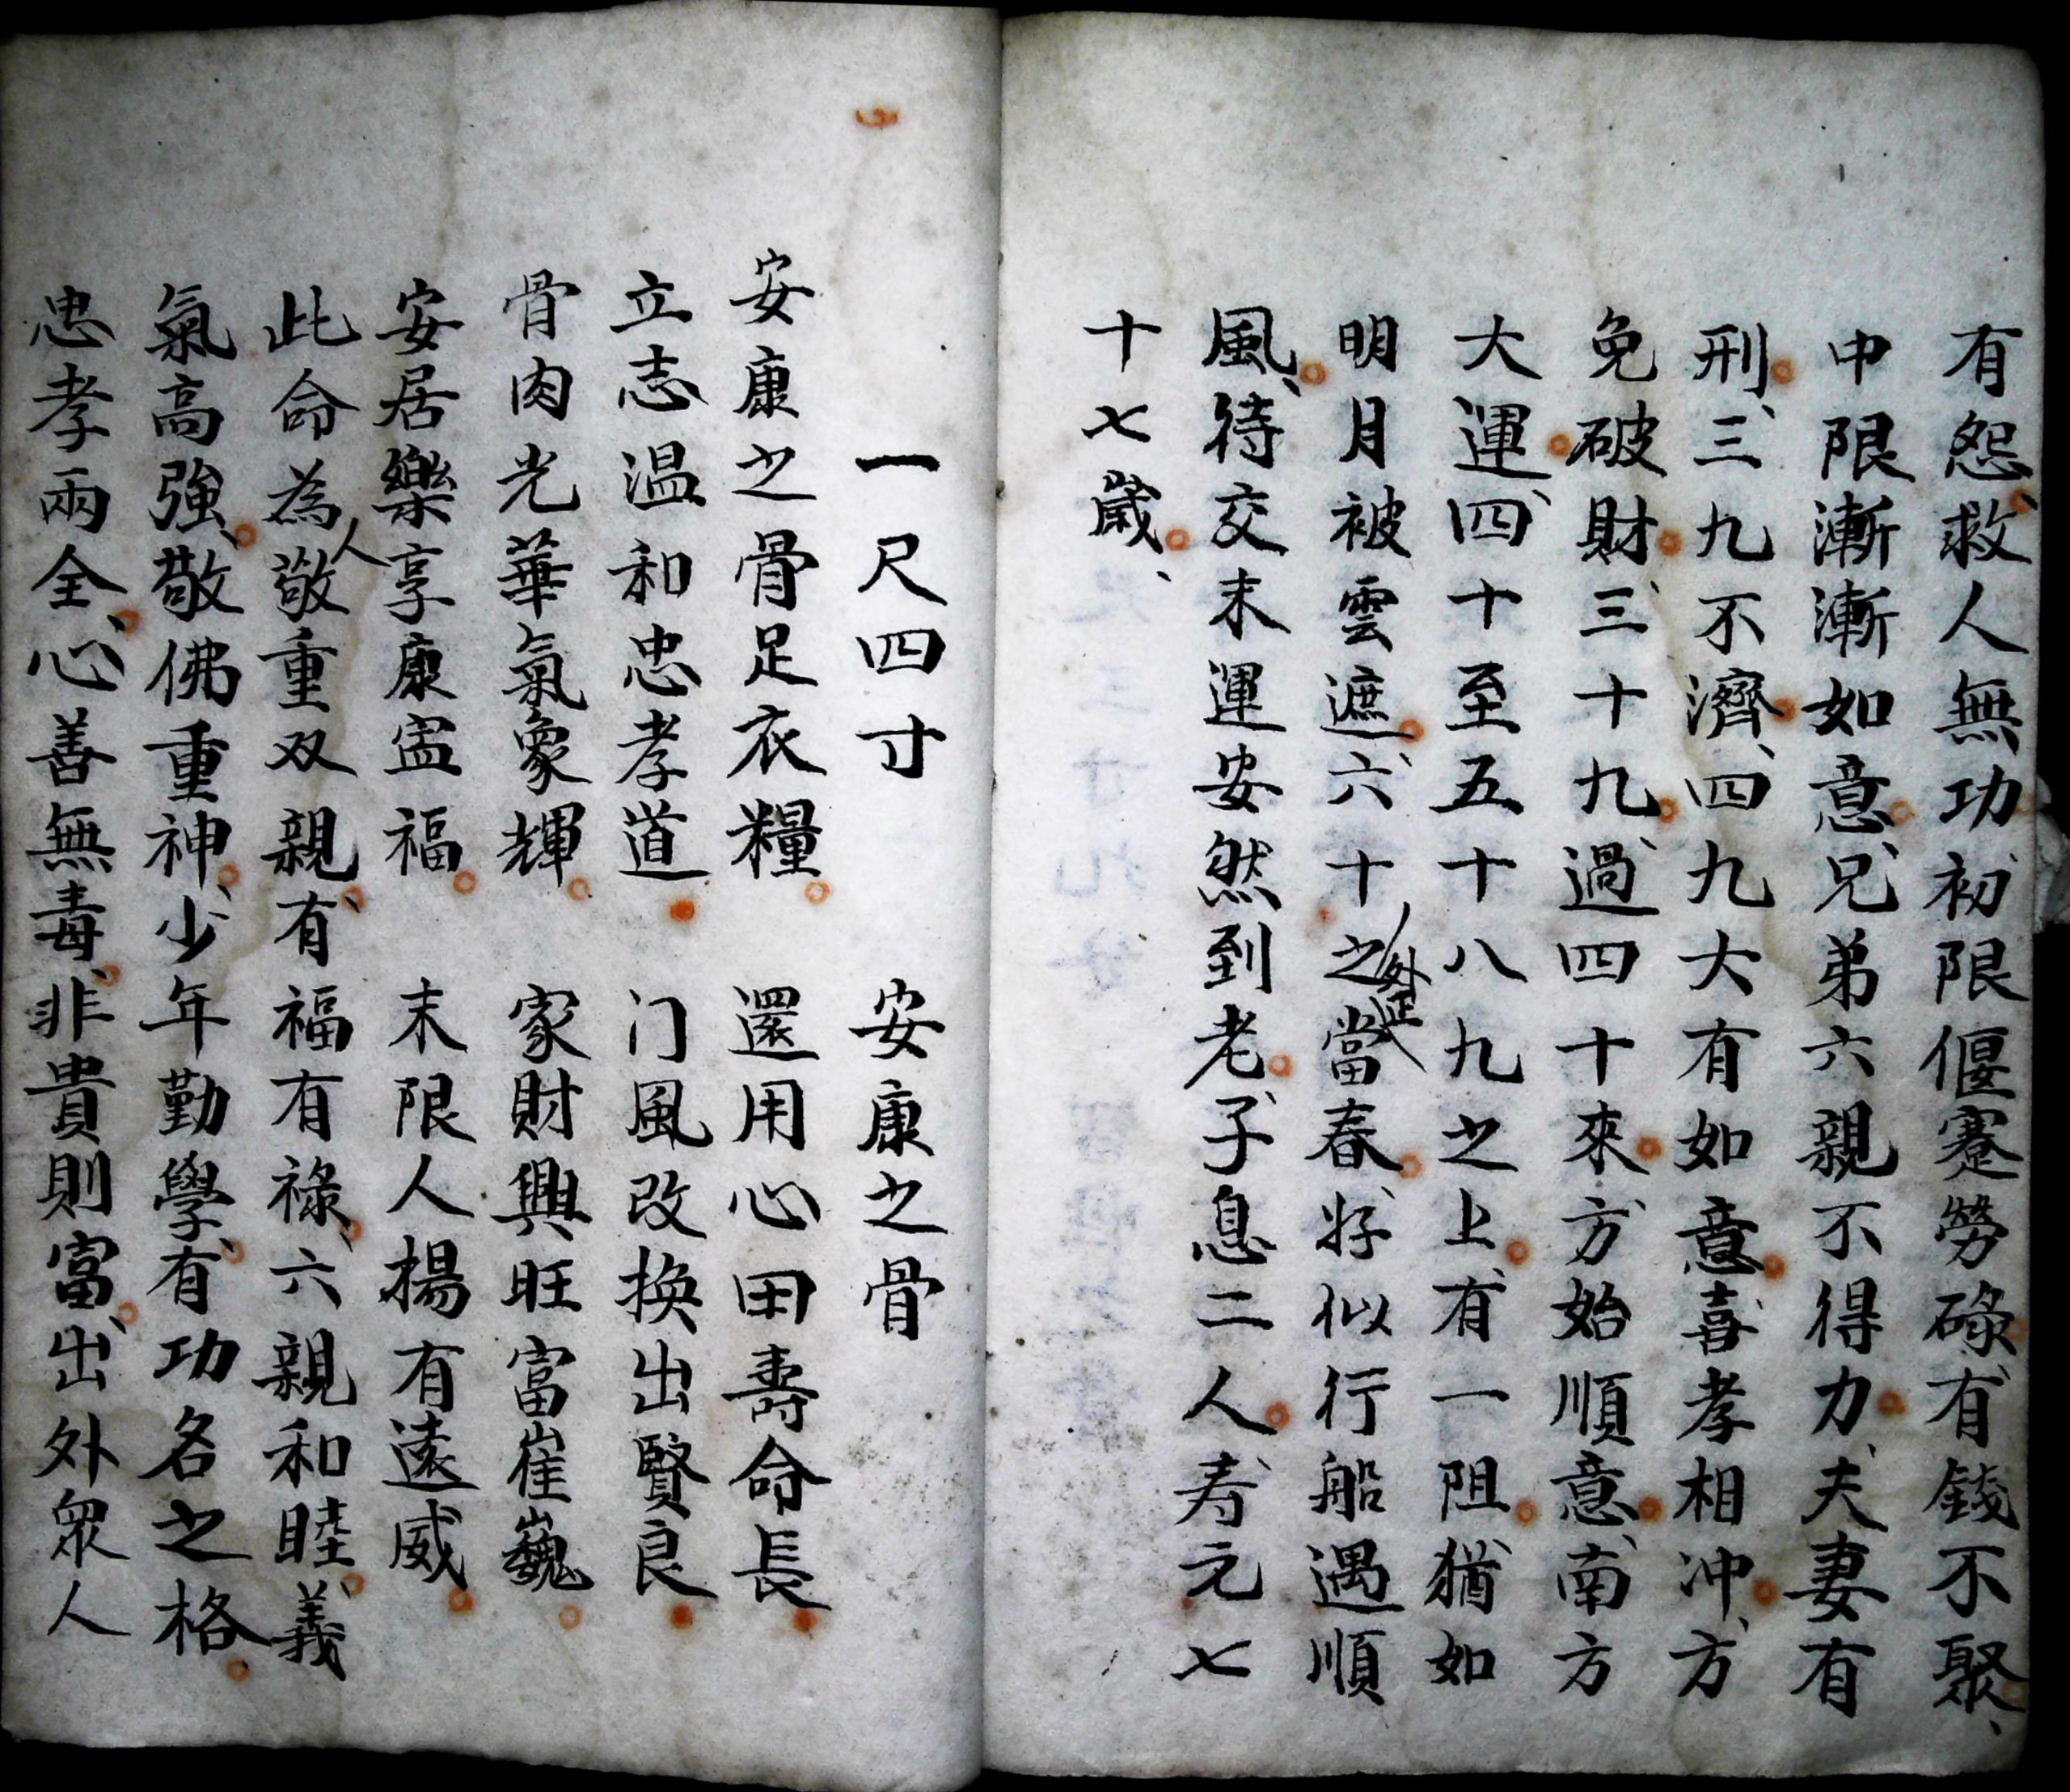 有怨、救人無功、初限偃蹇勞碌、有錢不聚、
中限漸漸如意、兄弟六親不得力、夫妻有
刑、三九不濟、四九大有如意、喜孝相冲、方
免破財、三十九、過四十來、方始順意、南方
大運、四十至五十八九之上、有一阻、猶如
明月被雲遮、六十之外正當春、好似行船遇順
風、待交末運安然到老、子息二人、寿元七
十七歲、
一尺四寸 安康之骨
安康之骨足衣糧 還用心田壽命長
立志温和忠孝道 门風改換出賢良
骨肉光華氣象輝 家財興旺富崔巍
安居樂享康寍福 末限人揚有遠威
此命為人敬重双親、有福有祿、六親和睦、義
氣高強、敬佛重神、少年勤學、有功名之格、
忠孝兩全、心善無毒、非貴則富、出外衆人